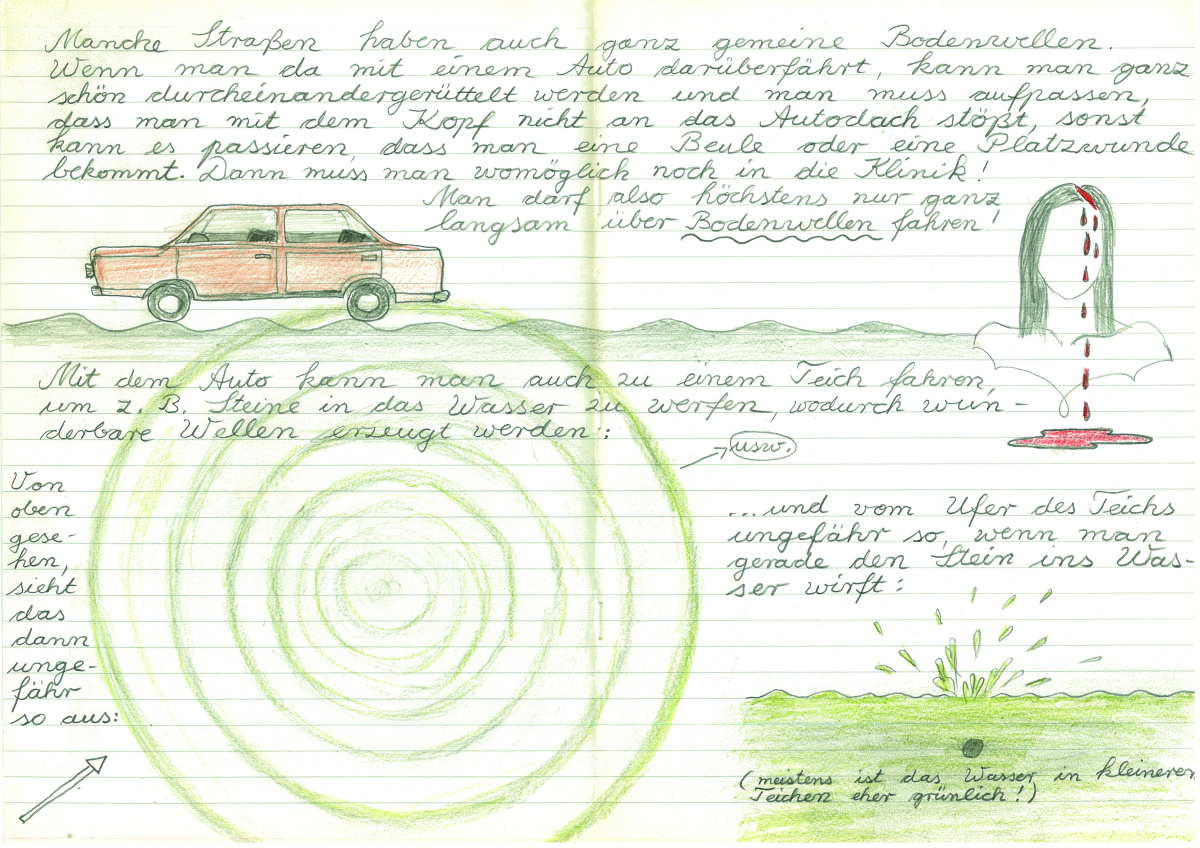 Manche Straßen haben auch ganz gemeine Bodenwellen.
Wenn man da mit einem Auto darüberfährt, kann man ganz
schön durcheinandergerüttelt werden und man muss aufpassen,
dass man mit dem Kopf nicht an das Autodach stößt, sonst
kann es passieren, dass man eine Beule oder eine Platzwunde
bekommt. Dann muss man womöglich noch in die Klinik!
Man darf also höchstens nur ganz
langsam über Bodenwellen fahren!
Mit dem Auto kann man auch zu einem Teich fahren,
um z. B. Steine in das Wasser zu werfen, wodurch wun-
derbare Wellen erzeugt werden:
usw.
Von
oben
gese-
hen,
sieht
das
dann
unge-
fähr
so aus:
...und vom Ufer des Teichs
ungefähr so, wenn man
gerade den Stein ins Was-
ser wirft:
(meistens ist das Wasser in kleineren
Teichen eher grünlich!)